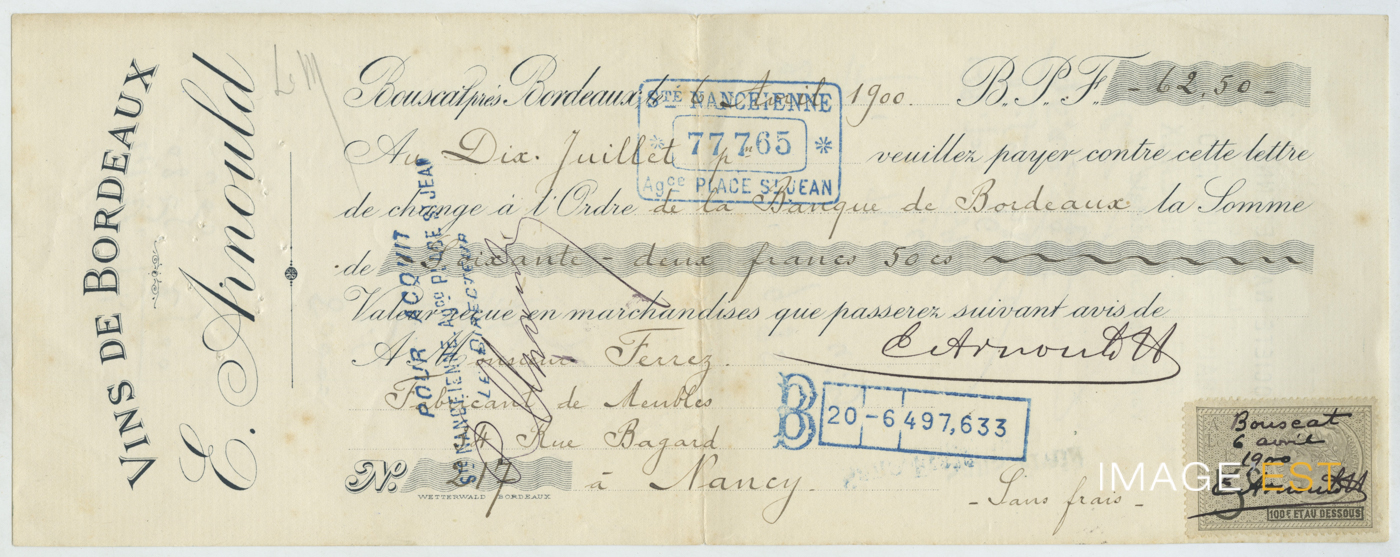 VINS DE BORDEAUX
E. Arnould
Le M
Bouscat près Bordeaux, le 6 Avril 1900. B.P.F. - 62,50 -
STÉ NANCÉIENNE
77,765
Agce PLACE ST JEAN
Au Dix. Juillet pr veuillez payer contre cette lettre
de change à l'Ordre de la Banque de Bordeaux la Somme
de Soixante - deux francs 50 cs
Valeur reçue en marchandises que passerez suivant avis de
A Monsieur Ferrez. E Arnould
Fabricant de Meubles
4 Rue Bagard
No. 217 à Nancy.
- Sans frais -
WETTERWALD BORDEAUX
POUR ACQUIT
STÉ NANCÉIENNE, Agce PLACE ST JEAN
LE DIRECTEUR
B 20-6 497,633
Bouscat
6 avril
1900
E Arnould
100F ET AU DESSOUS
IMAGE EST